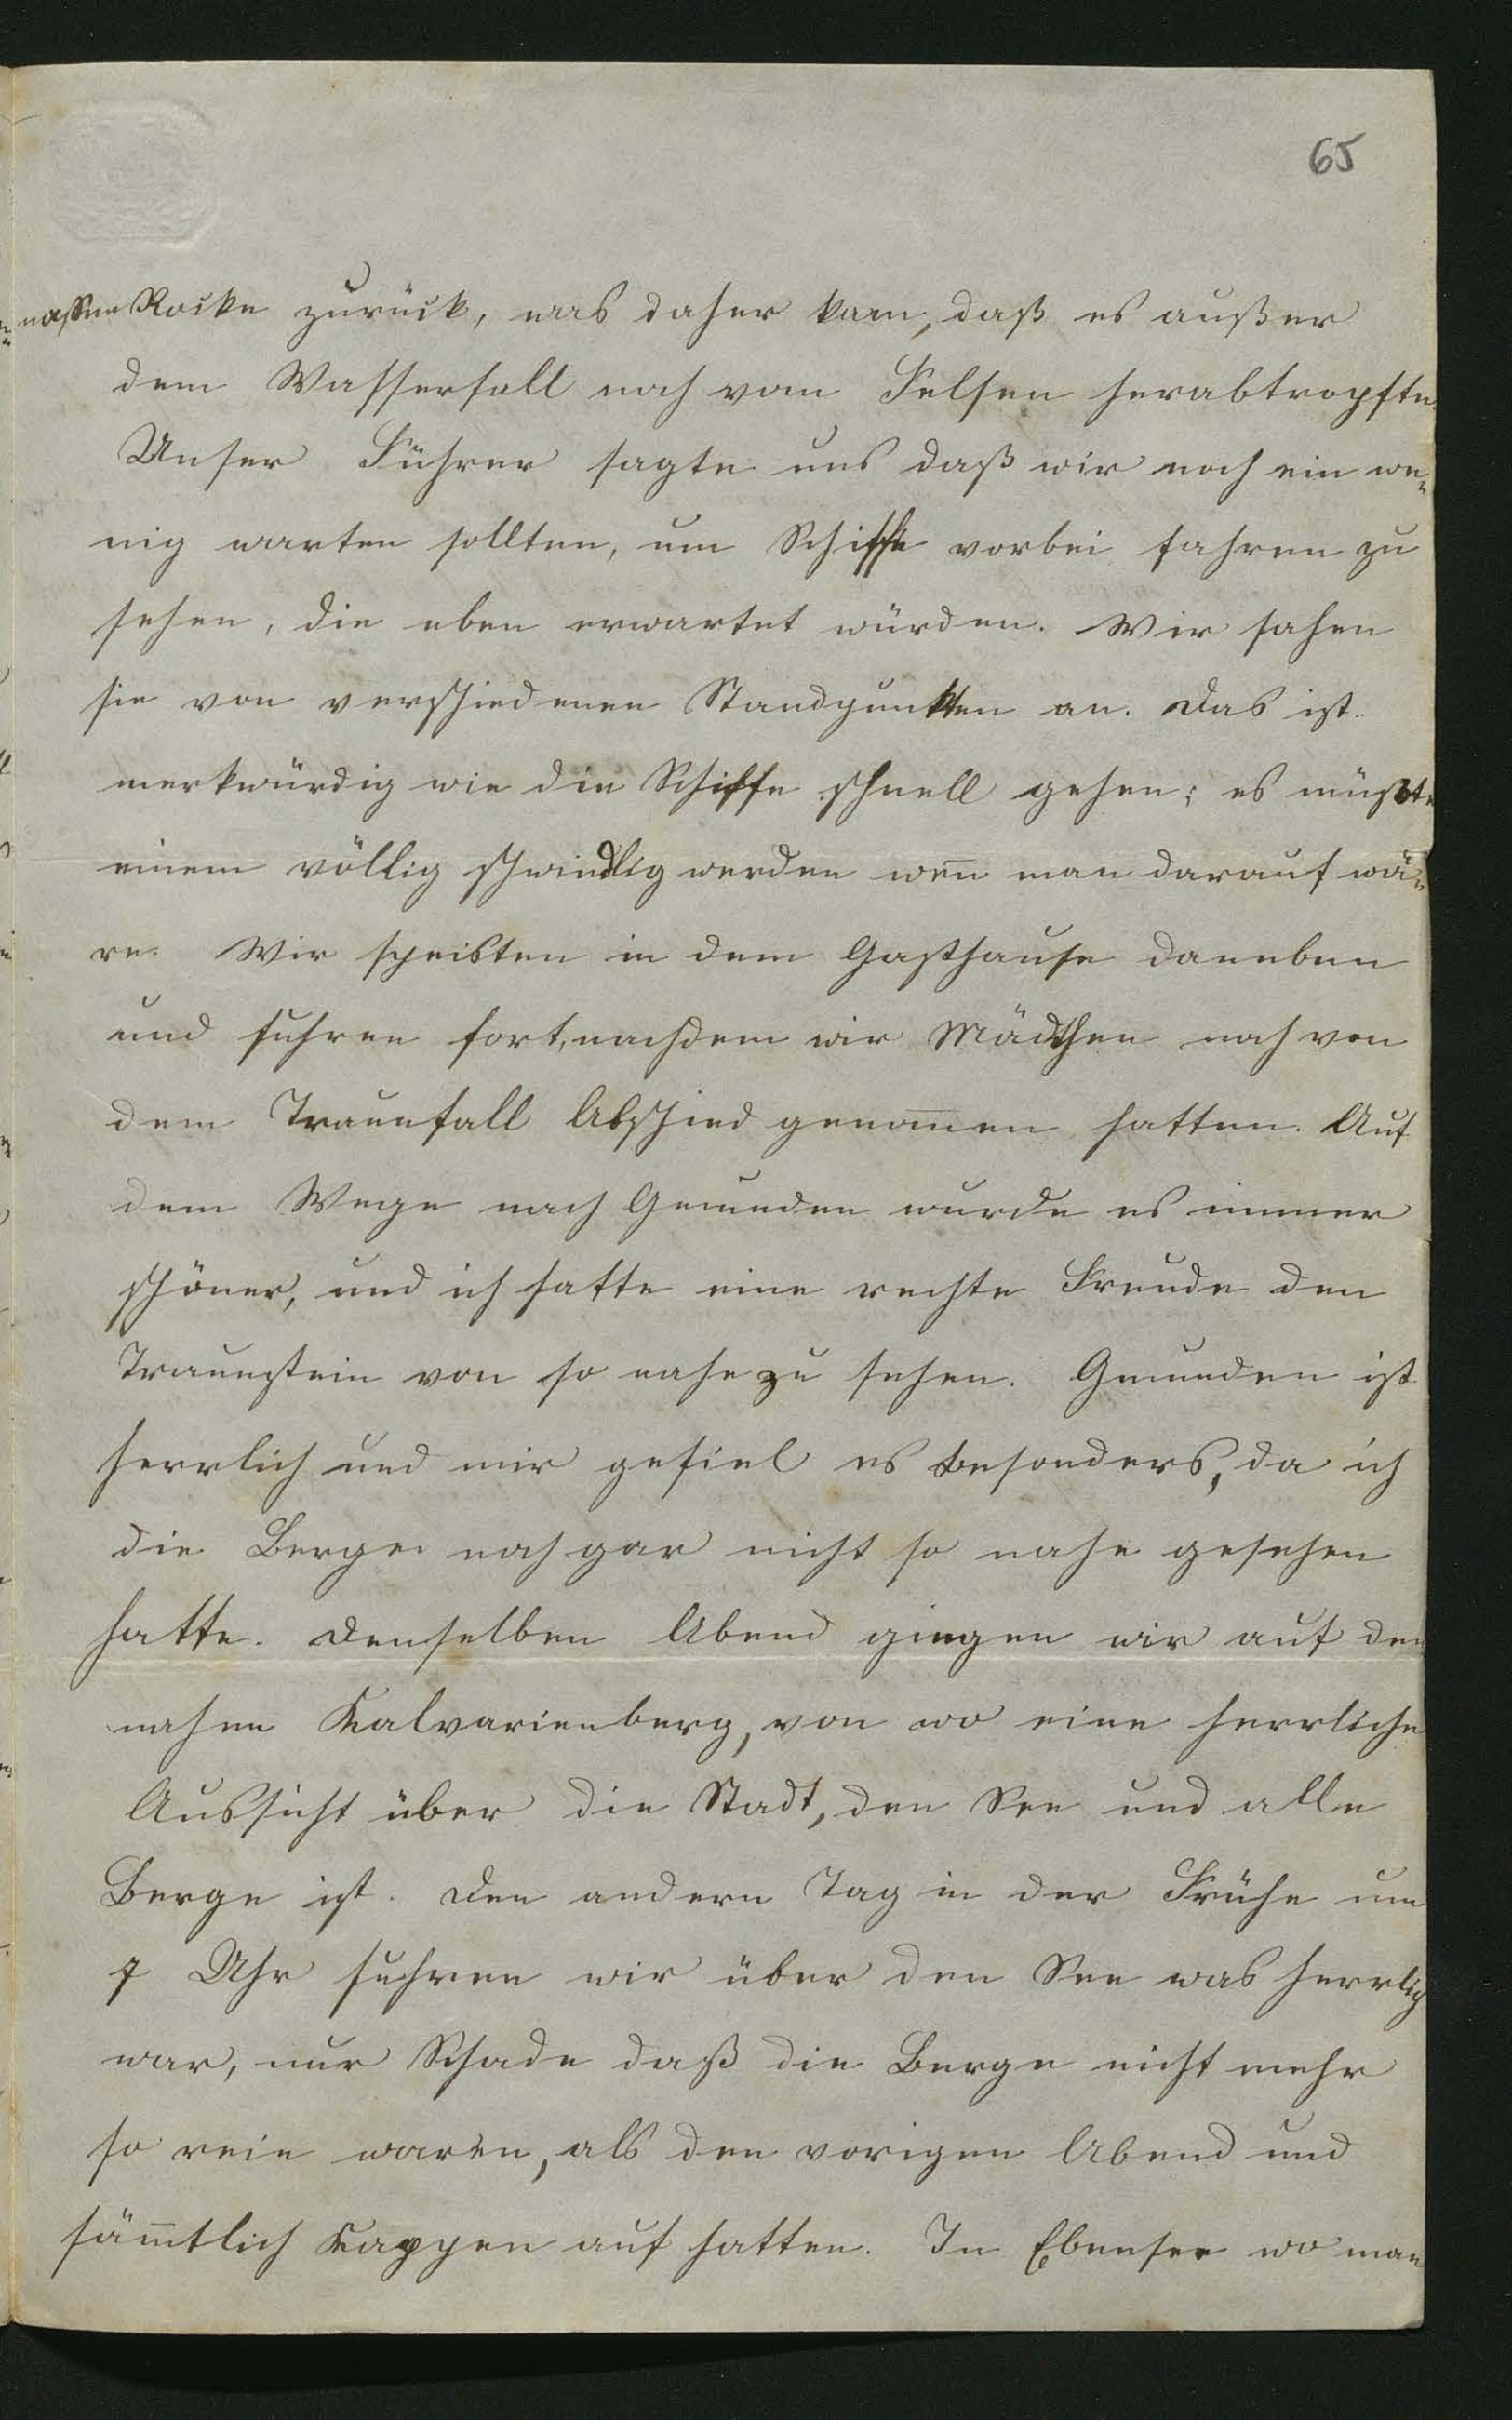 65
nassen Rocke zurück, was daher kam, daß es außer
dem Wasserfall noch vom Felsen herabtropfte.
Unser Führer sagte uns daß wir noch ein we„
nig warten sollten, um Schiffe vorbei fahren zu
sehen, die eben erwartet würden. Wir sahen
sie von verschiedenen Standpunkten an. Das ist
merkwürdig wie die Schiffe schnell gehen; es müßte
einem völlig schwindlig werden wen̅ man darauf wä„
re. Wir speisten in dem Gasthause daneben
und fuhren fort, nachdem wir Mädchen noch von
dem Traunfall Abschied genom̅en hatten. Auf
dem Wege nach Gmunden wurde es immer
schöner, und ich hatte eine rechte Freude den
Traunstein von so nahe zu sehen. Gmunden ist
herrlich und mir gefiel es besonders, da ich
die Berge noch gar nicht so nahe gesehen
hatte. Denselben Abend gingen wir auf den
nahen Kalvarienberg, von wo eine herrliche
Aussicht über die Stadt, den See und alle
Berge ist. Den andern Tag in der Frühe um
7 Uhr fuhren wir über den See was herrlich
war, nur Schade daß die Berge nicht mehr
so rein waren, als den vorigen Abend und
säm̅tlich Kappen auf hatten. In Ebensee wo man